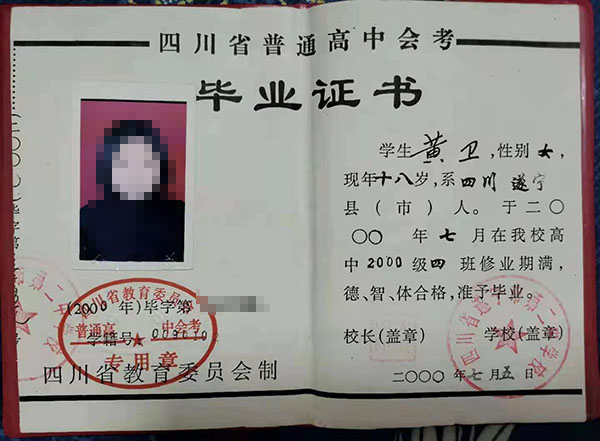 四川省普通高中会考
毕业证书
学生 黄卫,性别女,
现年十八岁,系四川 遂宁
县(市)人。于二〇
〇〇年七月在我校高
中2000级四班修业期满,
德、智、体合格,准予毕业。
校长(盖章) 学校(盖章)
二〇〇〇年七月五日
四川省教育委员会
(2000年)毕字第
普通高 中会考
学籍号
专用章
四川省教育委员会制